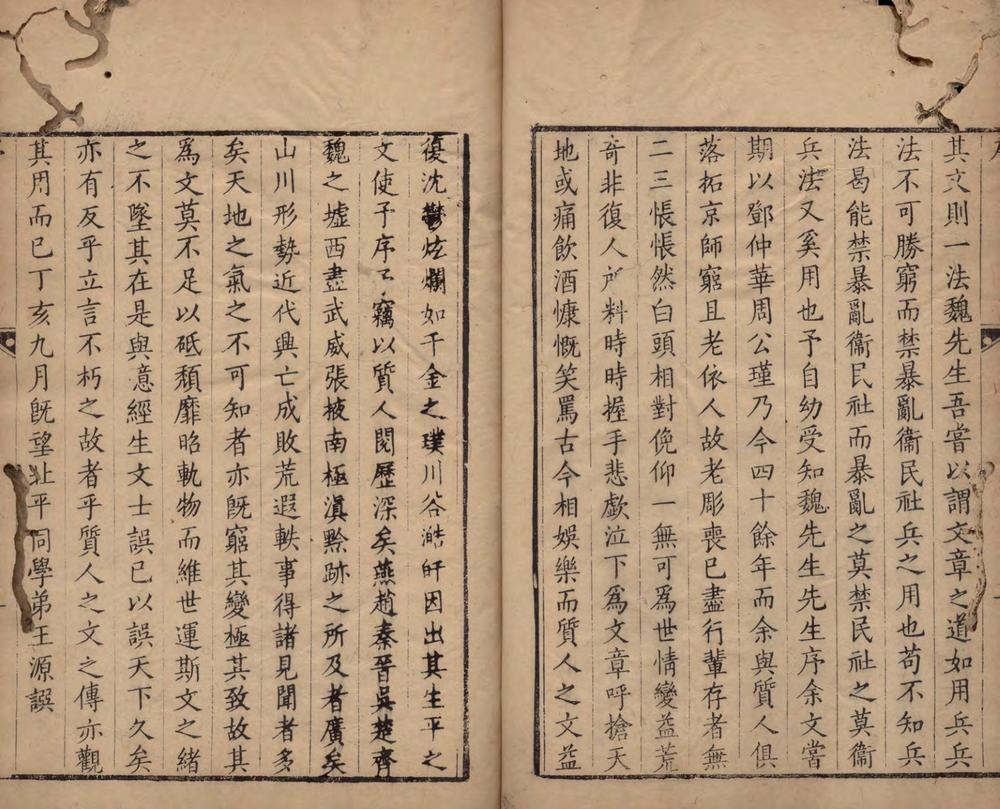 其文則一法魏先生吾嘗以謂文章之道如用兵兵
法不可勝窮而禁暴亂衞民社兵之用也苟不知兵
法曷能禁暴亂衞民社而暴亂之莫禁民社之莫衞
兵法又奚用也予自幼受知魏先生先生序余文嘗
期以鄧仲華周公瑾乃今四十餘年而余與質人俱
落拓京師窮且老依人故老彫喪已盡行輩存者無
二三悵悵然白頭相對俛仰一無可為世情變益荒
奇非復人所料時時握手悲歔泣下為文章呼搶天
地或痛飲酒慷慨笑罵古今相娛樂而質人之文益
復沈鬱炫爛如千金之璞川谷澔汗因出其生平之
文使予序予竊以質人閱歷深矣燕趙秦晉吳楚齊
魏之墟西盡武威張掖南極滇黔跡之所及者廣矣
山川形勢近代興亡成敗荒遐軼事得諸見聞者多
矣天地之氣之不可知者亦旣窮其變極其致故其
為文莫不足以砥頹靡昭軌物而維世運斯文之緒
之不墜其在是與意經生文士誤已以誤天下久矣
亦有反乎立言不朽之故者乎質人之文之傳亦觀
其用而已丁亥九月旣望北平同學弟王源譔